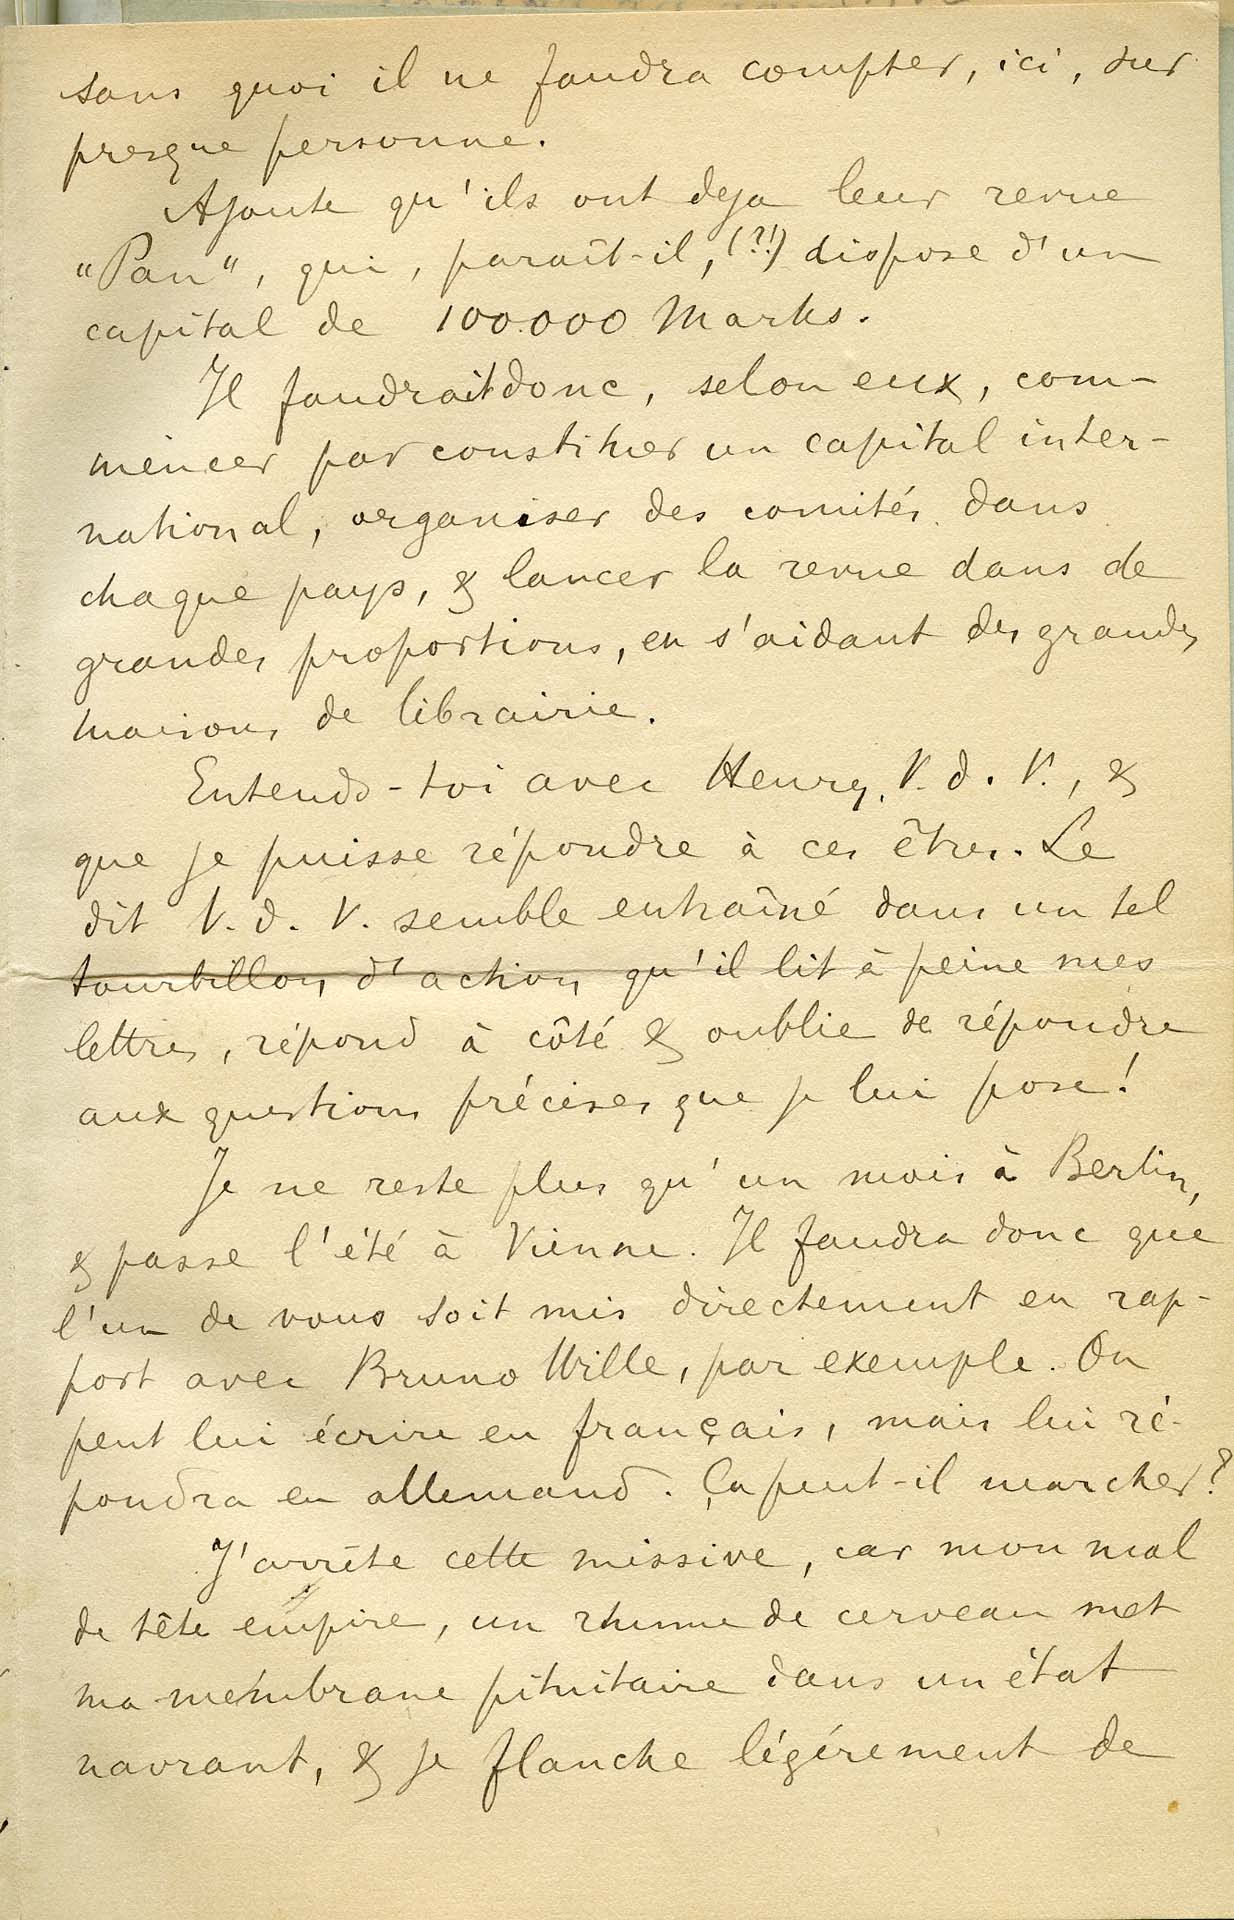 sans quoi il ne faudra compter, ici, sur
presque personne.
Ajoute qu'ils ont deja leur revue
"Pan", qui, paraît-il, (?!) dispose d'un
capital de 100.000 Marks.
Il faudrait donc, selon eux, com-
mencer par constituer un capital inter-
national, organiser des comités dans
chaque pays, & lancer la revue dans de
grandes proportions, en s'aidant des grandes
maisons de librairie.
Entends-toi avec Henry, V. d. V., &
que je puisse répondre à ces êtres. Le
dit V. d. V. semble entraîné dans un tel
tourbillon d'action qu'il lit à peine mes
lettres, répond à côté & oublie de répondre
aux questions précises que je lui pose!
Je ne reste plus qu'un mois à Berlin,
& passe l'été à Vienne. Il faudra donc que
l'un de vous soit mis directement en rap-
port avec Bruno Wille, par exemple. On
peut lui écrire en français, mais lui ré-
pondra en allemand. Ça peut-il marcher?
J'arrête cette missive, car mon mal
de tête empire, un rhume de cerveau met
ma membrane pituitaire dans un état
navrant, & je flanche légérement de